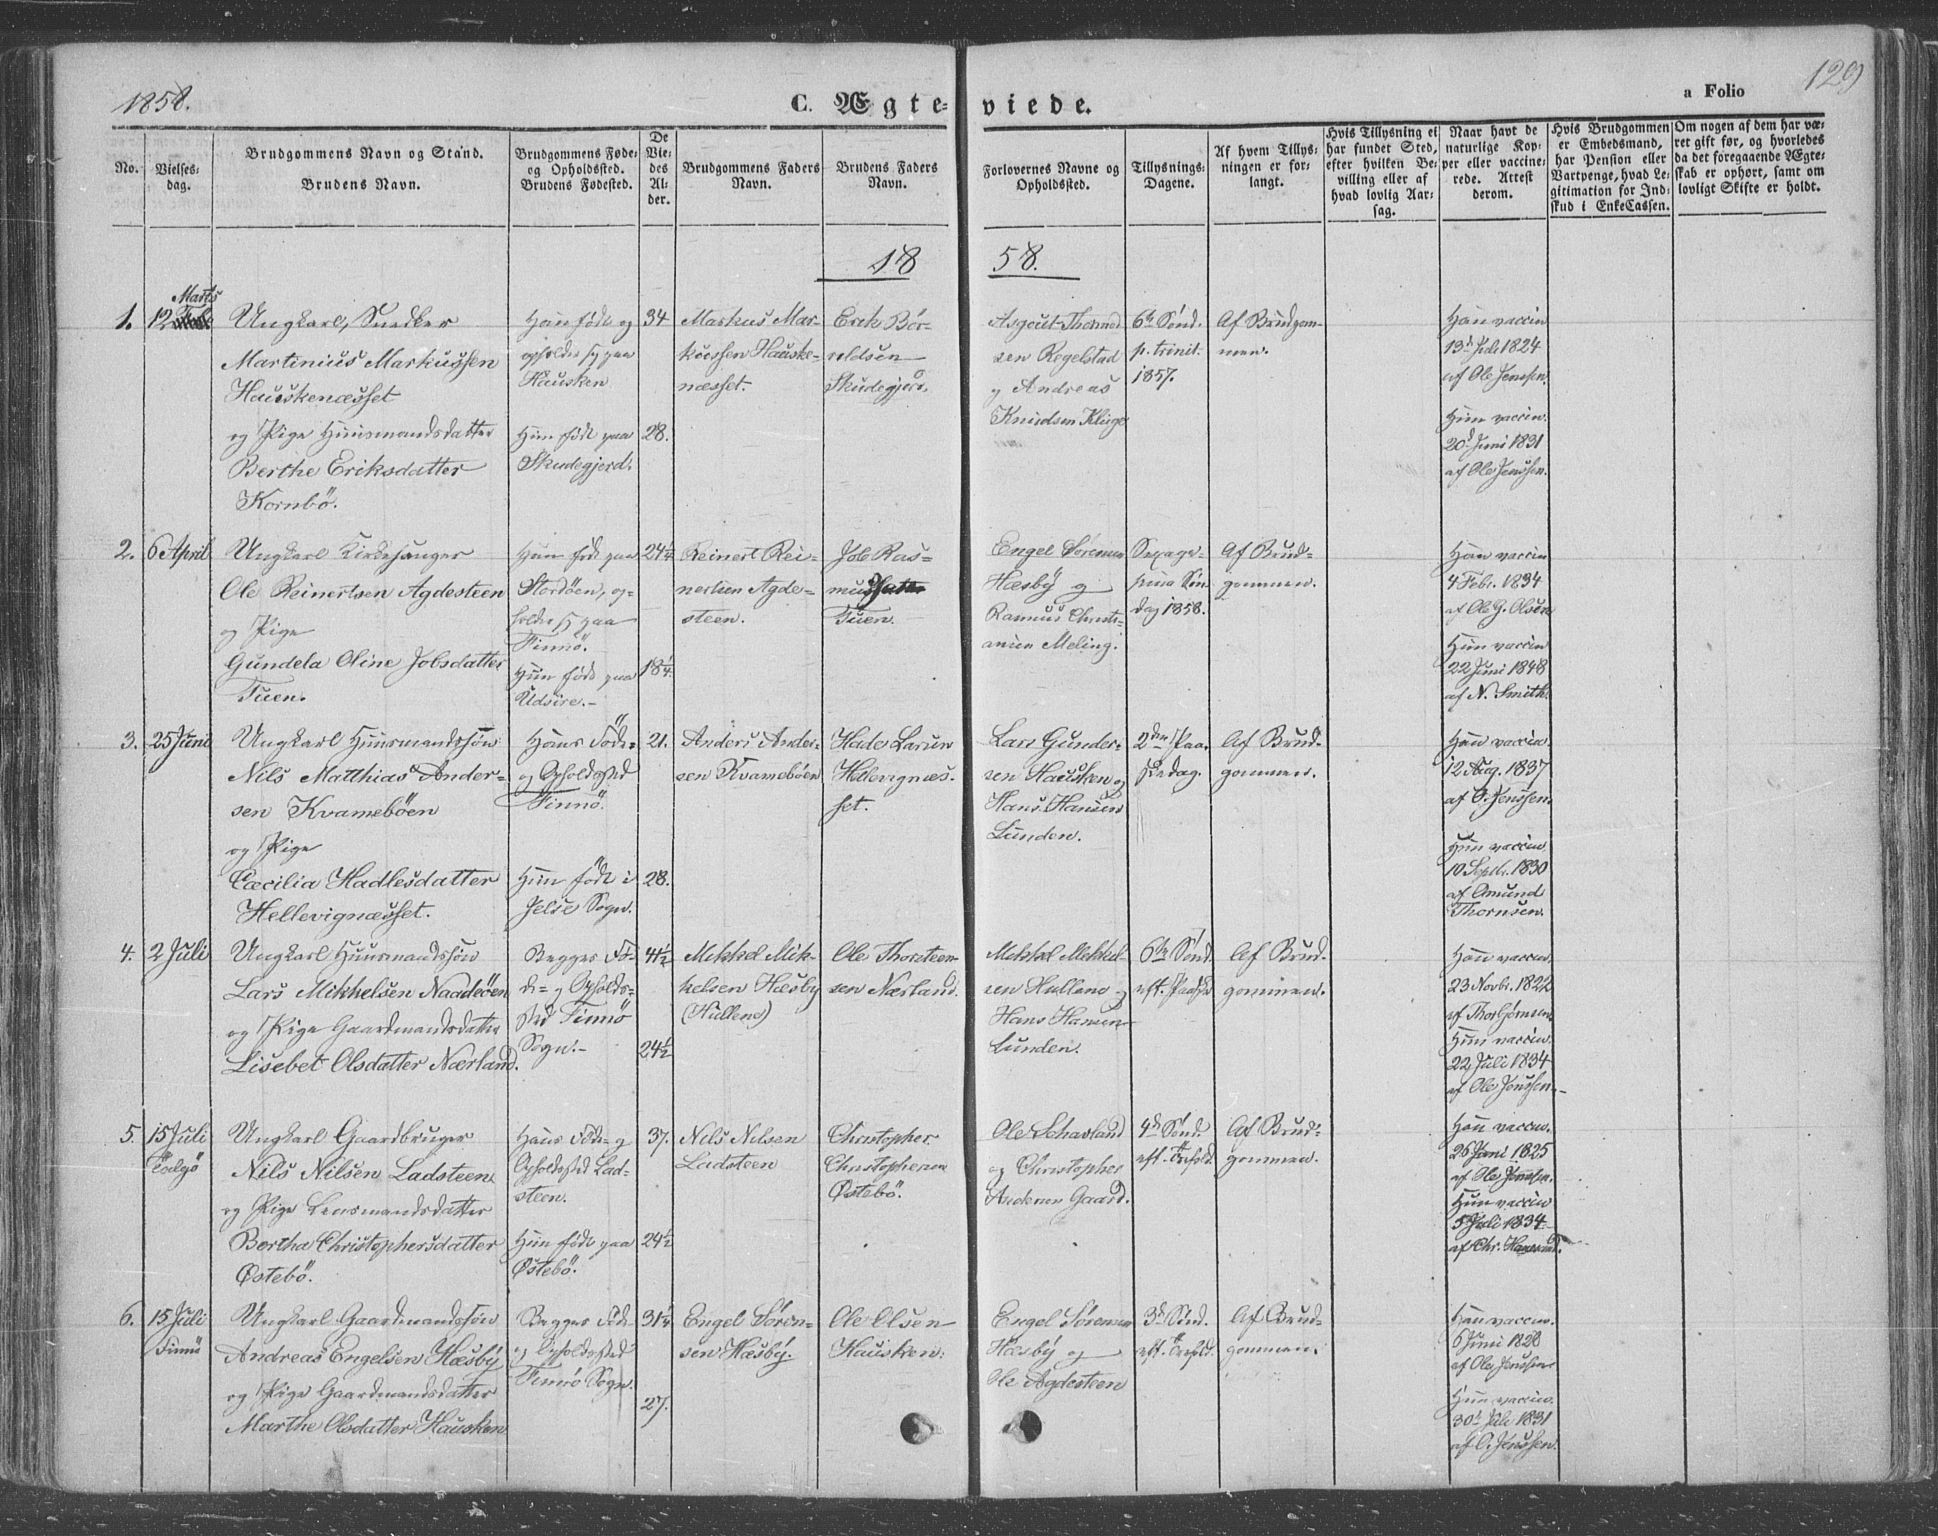 1858.
C. Ægte-
viede.
a Folio
129
No.
Vielses-
dag.
Brudgommens Navn og Stand.
Brudens Navn.
Brudgommens Føde-
og Opholdssted.
Brudens Fødested.
De
Vie-
des
Al-
der.
Brudgommens Faders
Navn.
Brudens Faders
Navn.
Forlovernes Navne og
Opholdssted.
Tillysnings-
Dagene.
Af hvem Tillys-
ningen er for-
langt.
Hvis Tillysning ei
har fundet Sted,
efter hvilken Be-
villing eller af
hvad lovlig Aar-
sag.
Naar havt de
naturlige Kop-
per eller vaccine-
rede. Attest
derom.
Hvis Brudgommen
er Embedsmand,
har Pension eller
Vartpenge, hvad Le-
gitimation for Ind-
skud i EnkeCassen.
Om nogen af dem har væ-
ret gift før, og hvorledes
da det foregaaende Ægte-
skab er ophørt, samt om
lovligt Skifte er holdt.
18 58.
1.
Marts
12
Ungkarl, Snedker
Martinius Markussen
Hauskenæsset
og Pige Huusmandsdatter
Berthe Eriksdatter
Kornbö.
Han föde og
opholder sig paa
Hausken
Hun föde paa
Skudegjerd.
34
28.
Markus Mar-
kussen Hauske-
næsset.
Erik Bör-
reldsen
Skudegjerd.
Asgout Thormod
sen Regelstad
og Andreas
Knudsen Kluge
6te Sönd.
p. trinit.
1857.
Af Brudgom-
men.
Han vaccin
13de Juli 1824
af Ole Jenssen.
Hun vaccin.
20de Juni 1831
af Ole Jenssen.
2.
6 April
Ungkarl Kirkesanger
Ole Reinertsen Agdesteen
og Pige
Gundela Oline Jobsdatter
Tuen.
Han föde paa
Stordöen, op-
holder sig paa
Finnö.
Hun föde paa
Udsire.-
24¼
18¼
Reinert Rei-
nertsen Agde-
steen.
Job Ras-
mus
Tuen.
Engel Sörensen
Hæsby og
Rasmus Christi-
ansen Meling.
Sexage-
sima Sön-
dag 1858.
Af Brud-
gommen.
Han vaccin
4 Febr. 1834
af Ole G. Olsen
Hun vaccin
22 Juni 1848
af N. Smith.
3.
25 Juni
Ungkarl Huusmandssön
Nils Matthias Ander-
sen Kvameböen
og Pige
Cæcilia Hadlesdatter
Hellevignæsset.
Hans Föde-
og Opholdssted
Finnö.
Hun föde i
Jelse Sogn.
21.
28.
Anders Ander-
sen Kvameböen
Hadle Larsen
Hellevignæs-
set.
Lars Gunder-
sen Hausken og
Hans Hansen
Lunden.
2den Paa-
skedag.
Af Brud-
gommen.
Han vaccin.
12 Aug. 1837
af O. Jenssen
Hun vaccin.
10 Septb. 1830
af Amund
Thornsen.
4.
2 Juli
Ungkarl Huusmandssön
Lars Mikkelsen Naadeöen
og Pige Gaardmandsdatter
Lisebet Olsdatter Nærland.
Begges Fö-
de- og Opholds-
sted Finnö
Sogn.-
41½
24½
Mikkel Mik-
kelsen Hæsby
(Hullene)
Ole Thorsteen-
sen Nærland.
Mikkel Mikkel-
sen Hullene og
Hans Hansen
Lunden.
6te Sönd.
eft. Paaske
Af Brud-
gommen.
Han vaccin.
23 Novbr. 1822
af Thor Gjömsen
Hun vaccin.
22 Juli 1834
af Ole Jenssen.-
5.
15 Juli
Talgö
Ungkarl Gaardbruger
Nils Nilsen Ladsteen
og Pige Lensmandsdatter
Bertha Christophersdatter
Østebö.
Hans Föde- og
Opholdssted Lad-
steen.
Hun föde paa
Østebö.
37.
24½
Nils Nilsen
Ladsteen
Christopher
Christophersen
Østebö.
Ole
og Christopher
Andersen Gaard.
4de Sönd.
eft. Trefold.
Af Brud-
gommen.
Han vaccin.
26 Juni 1825
af Ole Jenssen.
Hun vaccin
5 Juli 1834
af Chr.
6.
15 Juli
Finnö
Ungkarl Gaardmandssön
Andreas Engelsen Hæsby
og Pige Gaardmandsdatter
Marthe Olsdatter Hausken
Begges Föde-
og Opholdssted
Finnö Sogn.
31¼
27.
Engel Sören-
sen Hæsby.
Ole Olsen
Hausken.
Engel Sörensen
Hæsby og
Ole Agdesteen
3de Sönd.
eft. Trefold.
Af Brud-
gommen.
Han vaccin.
6 Juni 1828
af Ole Jenssen
Hun vaccin.
30te Juli 1831
af O. Jenssen.